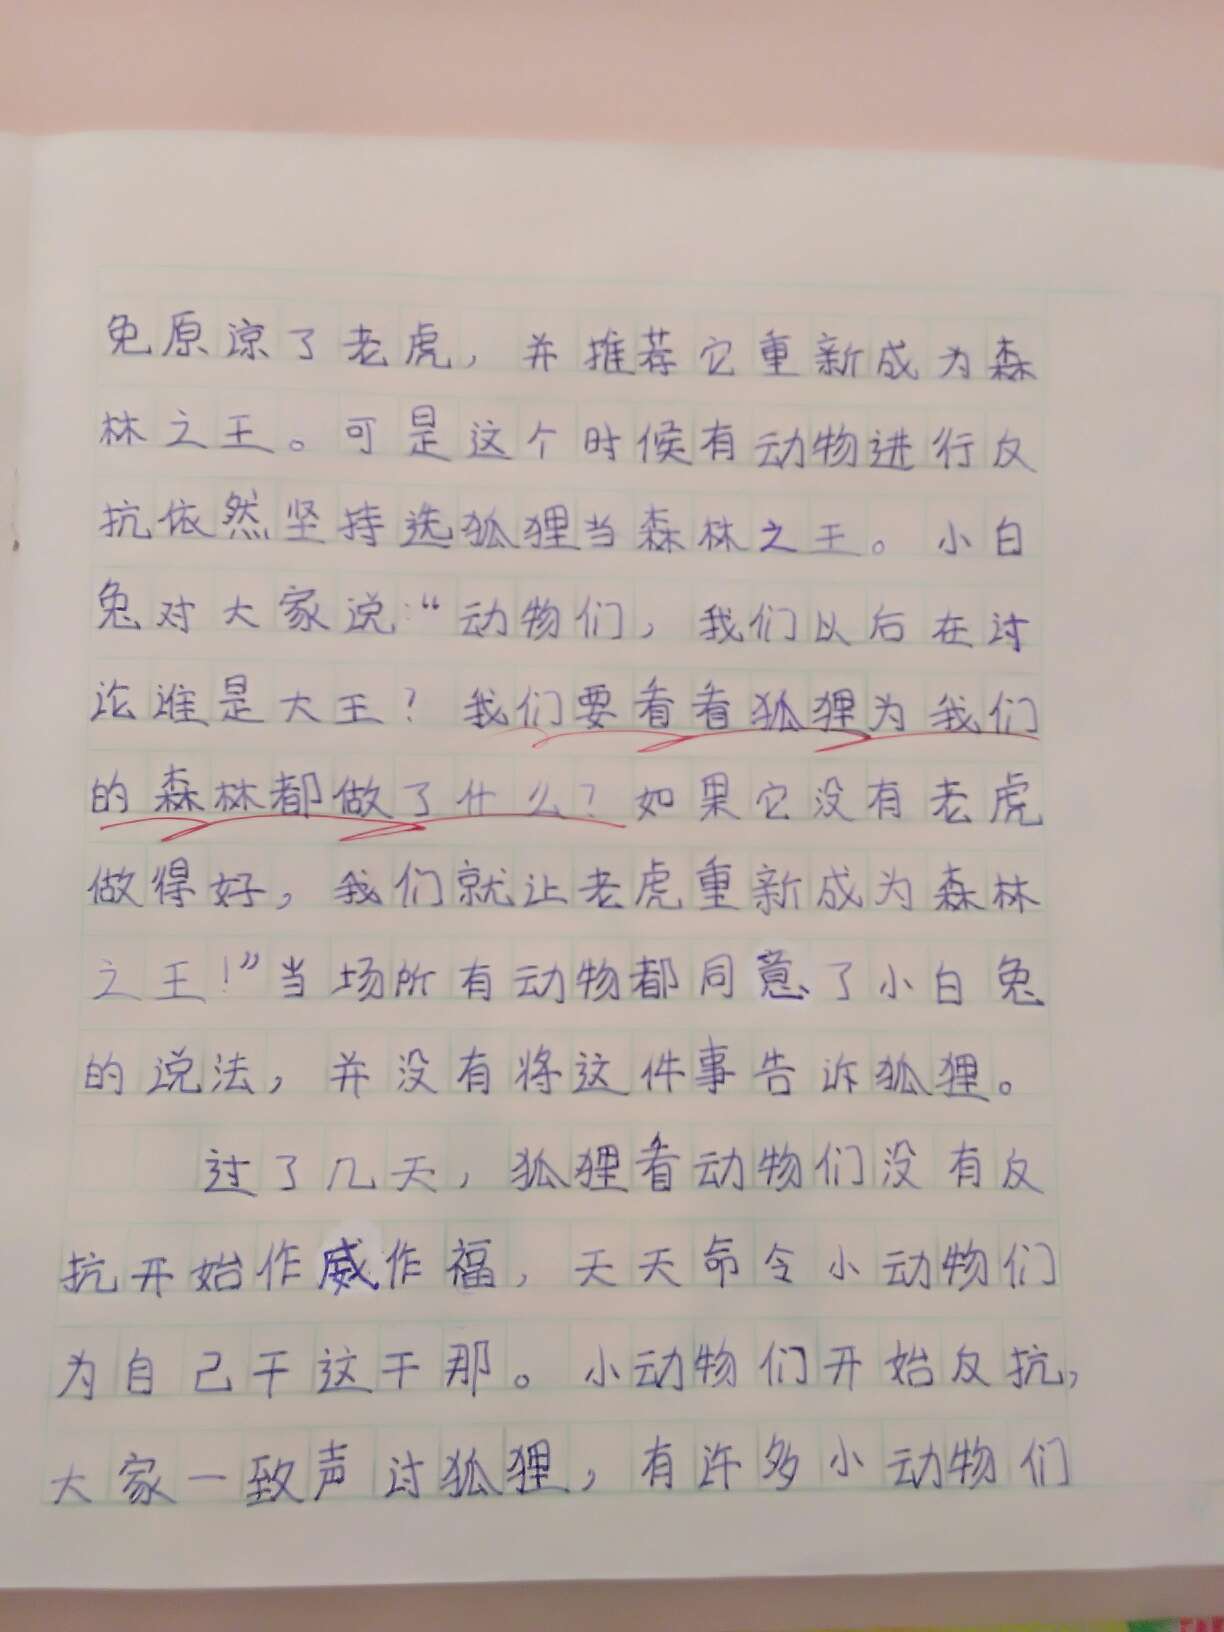 免原凉了老虎，并推荐它重新成为森
林之王。可是这个时候有动物进行反
抗依然坚持选狐狸当森林之王。小白
兔对大家说：“动物们，我们以后在讨
论谁是大王？我们要看看狐狸为我们
的森林都做了什么？如果它没有老虎
做得好，我们就让老虎重新成为森林
之王！”当场所有动物都同意了小白兔
的说法，并没有将这件事告诉狐狸。
过了几天，狐狸看动物们没有反
抗开始作威作福，天天命令小动物们
为自己干这干那。小动物们开始反抗，
大家一致声讨狐狸，有许多小动物们